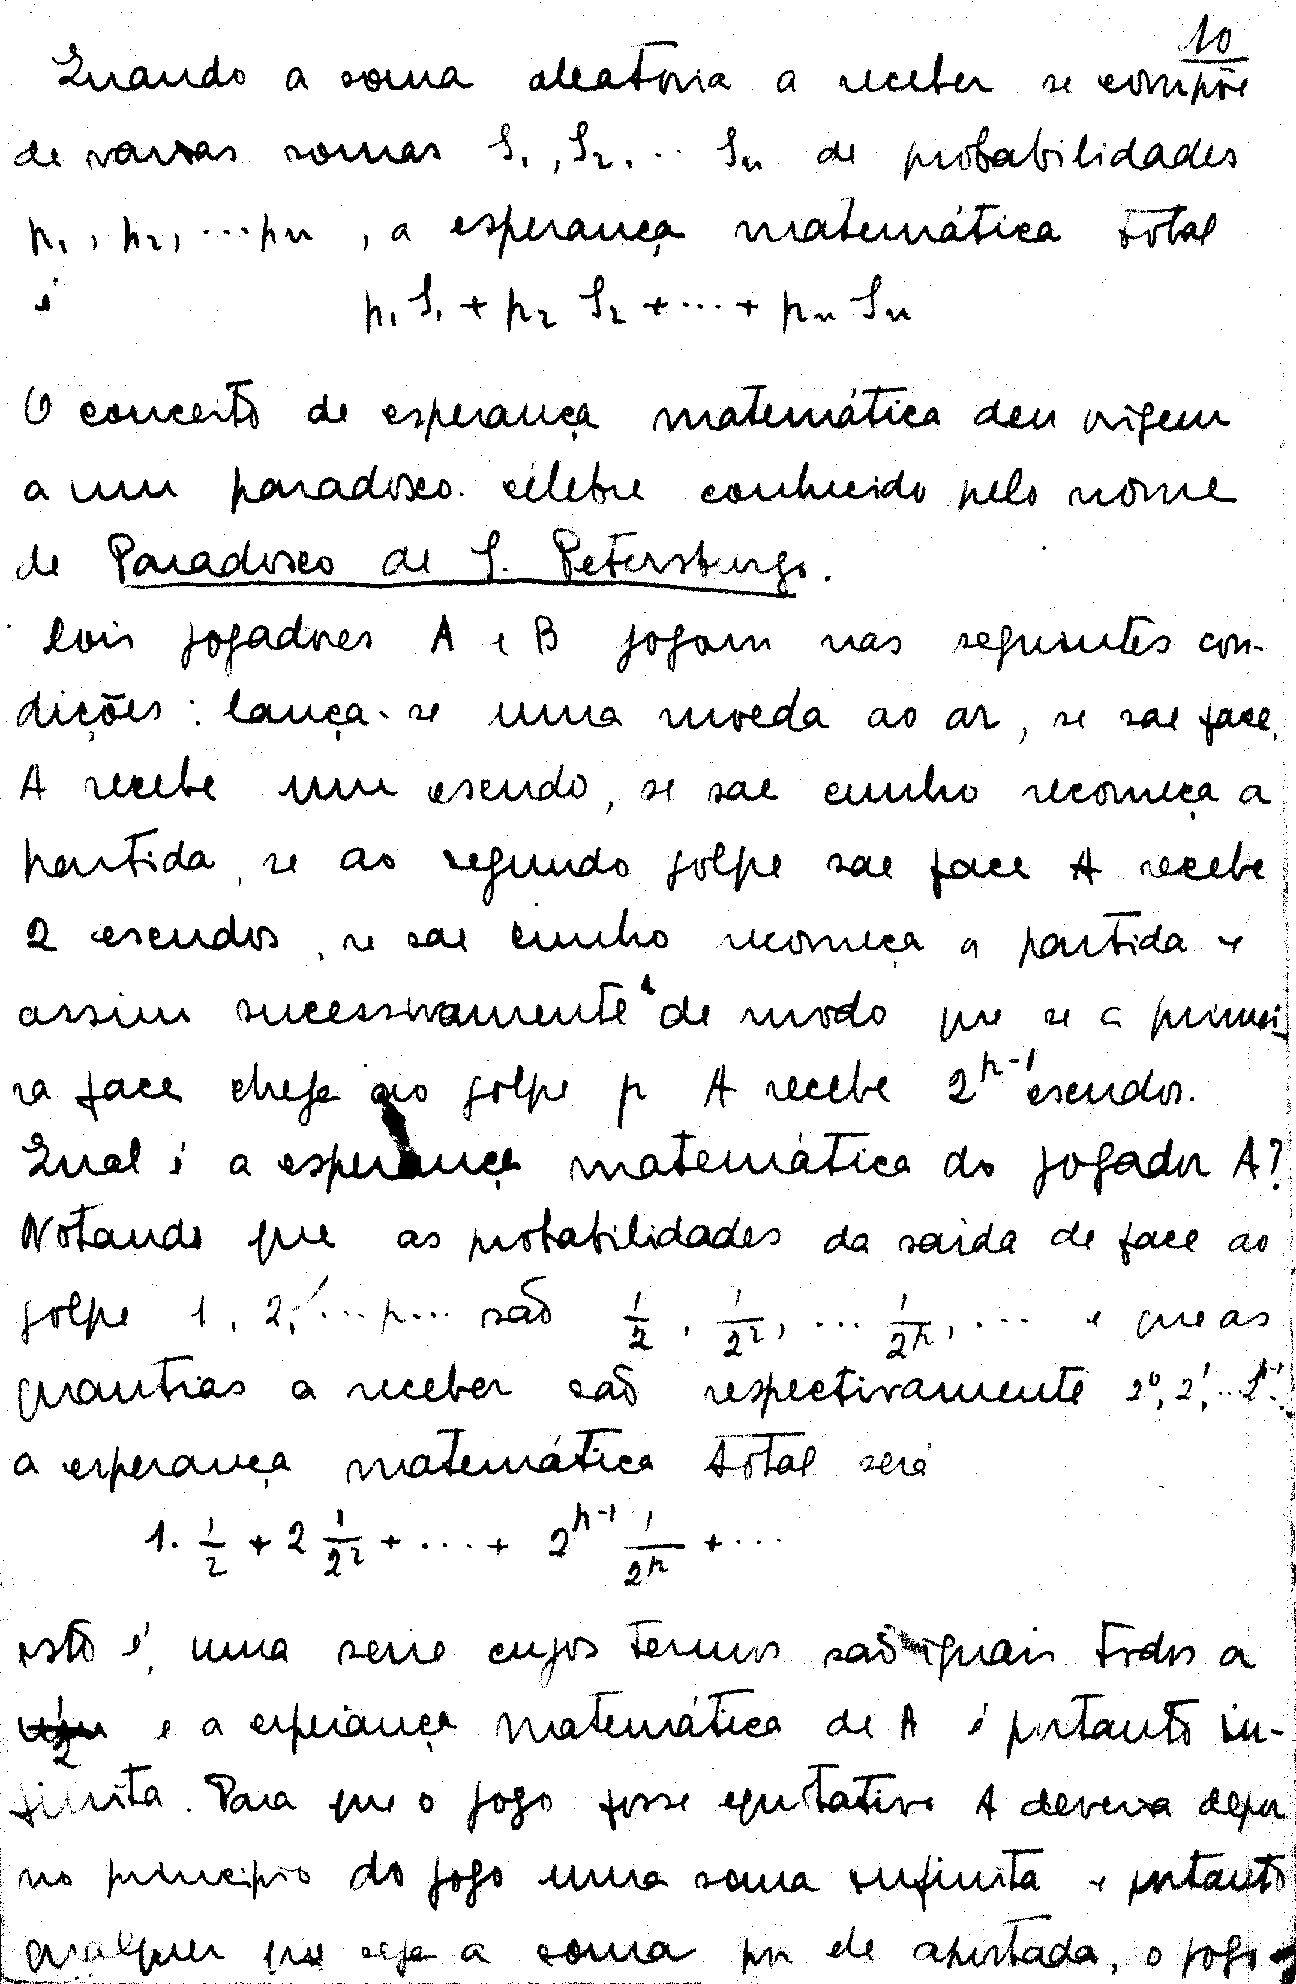 10
Quando a soma aleatoria a receber se compõe
de varias somas S₁, S₂, ... Sₙ de probabilidades
p₁, p₂, ... pₙ, a esperança matemática total
é p₁ S₁ + p₂ S₂ + ... + pₙ Sₙ
O conceito de esperança matemática deu origem
a um paradoxo celebre conhecido pelo nome
de Paradoxo de S. Petersburgo.
Dois jogadores A e B jogam nas seguintes con-
dições: lança-se uma moeda ao ar, se sae face,
A recebe um escudo, se sae cunho recomeça a
partida, se ao segundo golpe sae face A recebe
2 escudos, se sae cunho recomeça a partida e
assim sucessivamente de modo que se a primei-
ra face chega ao golpe p A recebe 2^{p-1} escudos.
Qual é a esperança matemática do jogador A?
Notando que as probabilidades da saida de face ao
golpe 1, 2, ... p ... são 1/2, 1/2², ... 1/2^p, ... e que as
quantias a receber são respectivamente 2⁰, 2¹, ...
a esperança matemática total será
1. 1/2 + 2 1/2² + ... + 2^{p-1} 1/2^p + ...
isto é, uma serie cujos termos são iguais todos a
1/2 e a esperiança matemática de A é portanto in-
finita. Para que o jogo fosse equitativo A deveria depor
no principio do jogo uma soma infinita e portanto
qualquer que seja a soma por ele apostada, o jogo